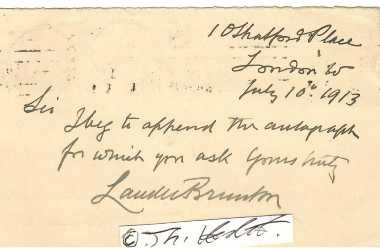 10 Stratford Place
London W
July 10th 1913
Sir
I beg to append the autograph
for which you ask Yours truly
Lauder Brunton
©